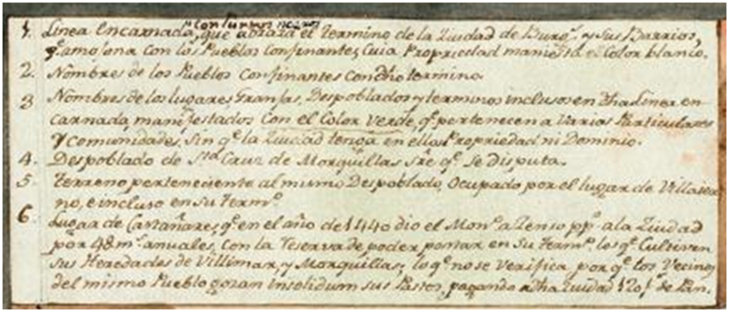 con lineas negras
1. Linea encarnada, que abraza el termino de la Ziudad de Burgs. y Sus Barrios,
qe. amojona con los Pueblos confinantes, Cuia Propriedad manifta. el Color blanco.
2. Nombres de los Pueblos Confinantes Con dho termino.
3 Nombres de los lugares, Granjas, Despoblados y terminos inclusos en dha Linea en
carnada, manifestados Con el Color verde, qe. pertenecen a Varios Particulares
y comunidades, Sin qe. la Ziudad tenga en ellos Propriedad ni Dominio.
4. Despoblado de Sta. Cruz de Morquillas sre qe. se disputa.
5. Terreno perteneciente al mismo Despoblado, Ocupado por el lugar de Villaier
no, e incluso en Su Termo.
6. Lugar de Castañares, qe. en el año de 1440 dio el Mono. a Zenso ppo. a la Ziudad
por 48 ms. anuales, Con la reserva de poder pastar en Su Termo. los qe. Cultiven
sus Heredades de Villimar, y Morquillas; lo qe. no se Verifica, por qe. los Vecinos
del mismo Pueblo gozan insolidum sus Pastos, pagando a dha Ziudad 120 fs. de Pan.